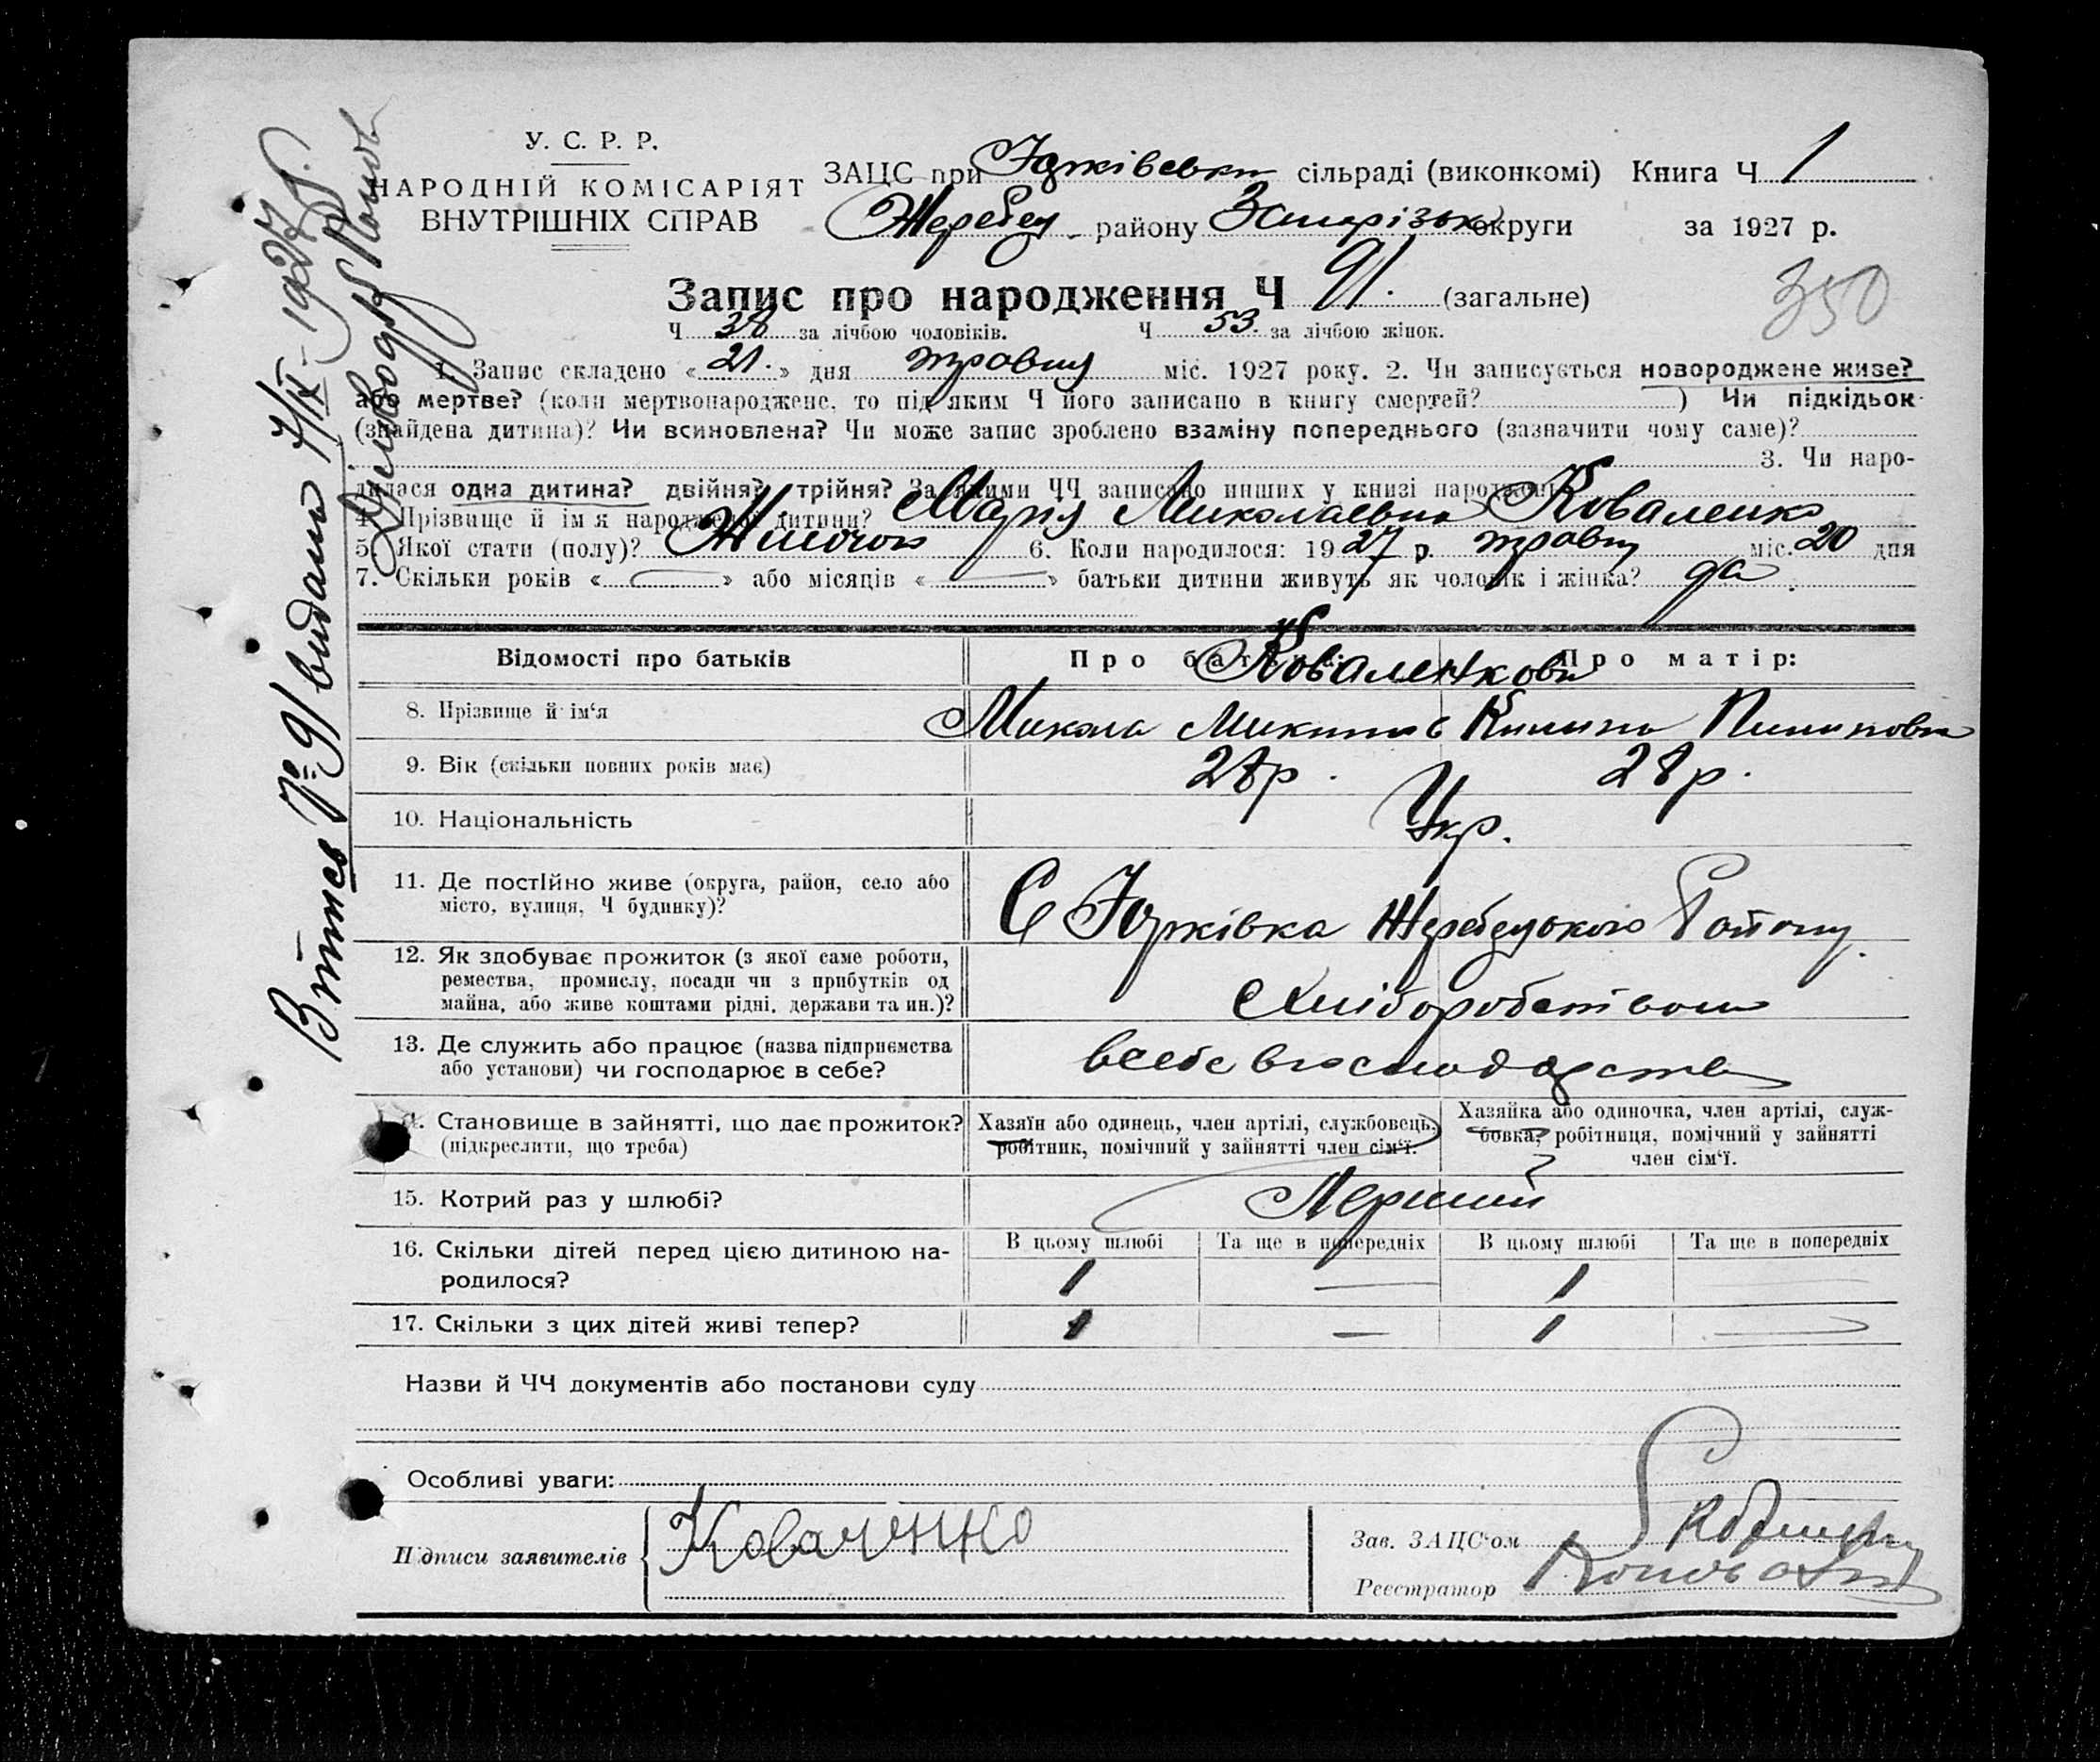 У. С. Р. Р.
НАРОДНІЙ КОМІСАРІЯТ
ВНУТРІШНІХ СПРАВ
ЗАЦС при Юрківській сільраді (виконкомі) Книга Ч 1
Жеребец. району Запорізьк округи за 1927 р.
Запис про народження Ч 91. (загальне)
350
Ч 38 за лічбою чоловіків. Ч 53. за лічбою жінок.
1. Запис складено «21.» дня травня міс. 1927 року. 2. Чи записується новороджене живе?
або мертве? (коли мертвонароджене, то під яким Ч його записано в книгу смертей? ) Чи підкідьок
(знайдена дитина)? Чи всиновлена? Чи може запис зроблено взаміну попереднього (зазначити чому саме)?
3. Чи наро-
дилася одна дитина? двійня? трійня? За якими ЧЧ записано инших у книзі народжень
4. Прізвище й ім'я народженої дитини? Марія Миколаевна Коваленко
5. Якої стати (полу)? Жіночої 6. Коли народилося: 1927 р. травня міс. 20 дня
7. Скільки років « — » або місяців « — » батьки дитини живуть як чоловік і жінка? да.
Відомості про батьків Про батька: Про матір:
Коваленкови
8. Прізвище й ім'я Микола Микитов Килина Пилиповна
9. Вік (скільки повних років має) 28р. 28р.
10. Національність Укр.
11. Де постійно живе (округа, район, село або
місто, вулиця, Ч будинку)?
С Юрківка Жеребецького Району.
12. Як здобуває прожиток (з якої саме роботи,
ремества, промислу, посади чи з прибутків од
майна, або живе коштами рідні, держави та ин.)?
Хліборобством
13. Де служить або працює (назва підприємства
або установи) чи господарює в себе?
всебе вгосподарстве
14. Становище в зайнятті, що дає прожиток?
(підкреслити, що треба)
Хазяїн або одинець, член артілі, службовець,
робітник, помічний у зайнятті член сім'ї.
Хазяйка або одиночка, член артілі, служ-
бовка, робітниця, помічний у зайнятті
член сім'ї.
15. Котрий раз у шлюбі? Перший
16. Скільки дітей перед цією дитиною на-
родилося?
В цьому шлюбі Та ще в попередніх В цьому шлюбі Та ще в попередніх
1 — 1 —
17. Скільки з цих дітей живі тепер? 1 — 1 —
Назви й ЧЧ документів або постанови суду
Особливі уваги:
Підписи заявителів Коваленко
Зав. ЗАЦС'ом
Реєстратор
Витяг № 91 видано 7/IX - 1927 р.